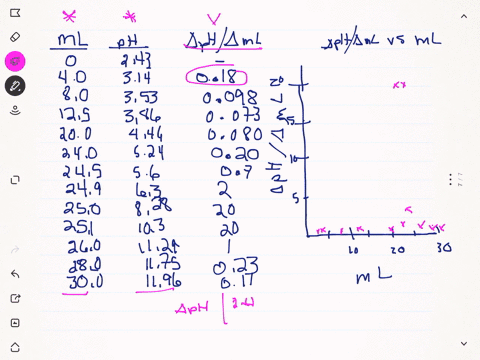 mL pH ΔpH/ΔmL ΔpH/ΔmL vs mL
0 2.43 –
4.0 3.14 0.18
8.0 3.53 0.098
12.5 3.86 0.073
20.0 4.46 0.080
24.0 5.24 0.20
24.5 5.6 0.7
24.9 6.3 2
25.0 8.28 20
25.1 10.3 20
26.0 11.29 1
28.0 11.75 0.23
30.0 11.96 0.17
ΔpH
ΔpH/ΔmL
20
15
10
5
10 20 30
mL